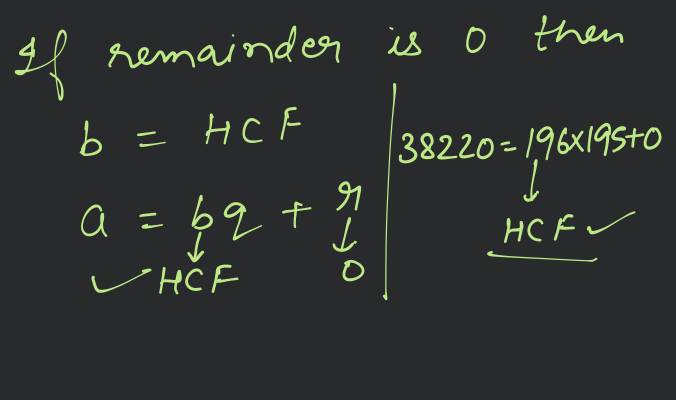 If remainder is 0 then
b = HCF
a = bq + r
↓ ↓
✓ HCF 0
38220 = 196×195+0
↓
HCF ✓